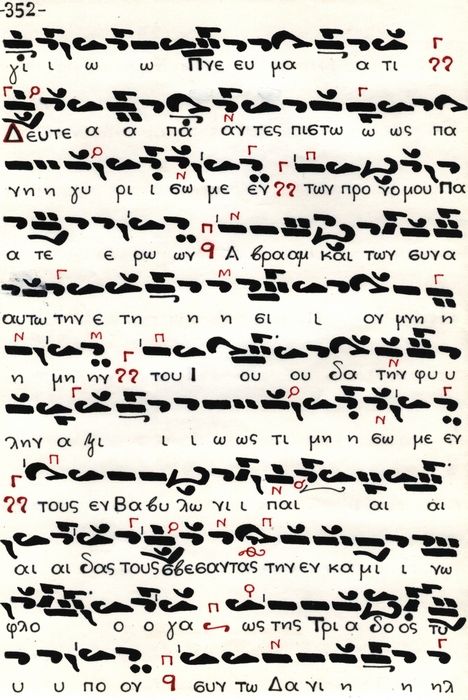 -352-
γί ι ω ω Πνε ευ μα α τι
Δευτε α α πα αν τες πιστω ω ως πα
νη η γυ ρι ι σω με εν των προ γομου Πα
α τε ε ρω ων Α βρααμ και των συνα
αυτω την ε τη η η σι ι ον μνη η
η μη ην του Ι ου ου δα την φυ υ
λην α ξι ι ι ω ως τι μη η σω με εν
τους εν Βα βυ λω νι ι παι αι αι
αι αι δας τους σβεσαντας την εν κα μι ι νω
φλο ο ο γα ως της Τρι α δο ος τυ
υ υ πο ον συν τω Δα νι η η ηλ